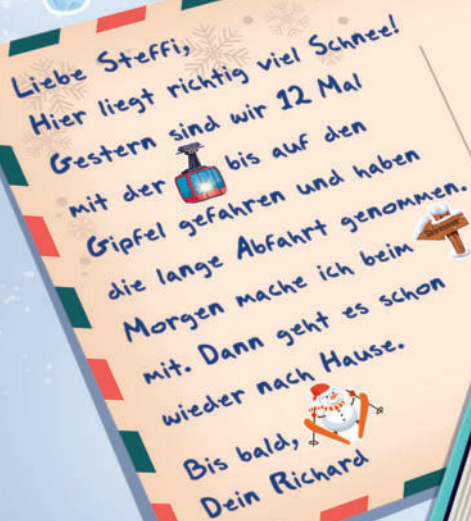 Liebe Steffi,
Hier liegt richtig viel Schnee!
Gestern sind wir 12 Mal
mit der bis auf den
Gipfel gefahren und haben
die lange Abfahrt genommen.
Morgen mache ich beim Skirennen
mit. Dann geht es schon
wieder nach Hause.
Bis bald,
Dein Richard